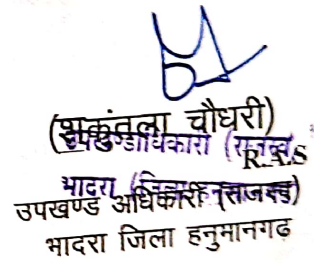 (शकुंतला चौधरी)
उपखण्डाधिकारी (राजस्व
R.A.S
भादरा (जिला हनुमानगढ़)
उपखण्ड अधिकारी (राजस्व)
भादरा जिला हनुमानगढ़